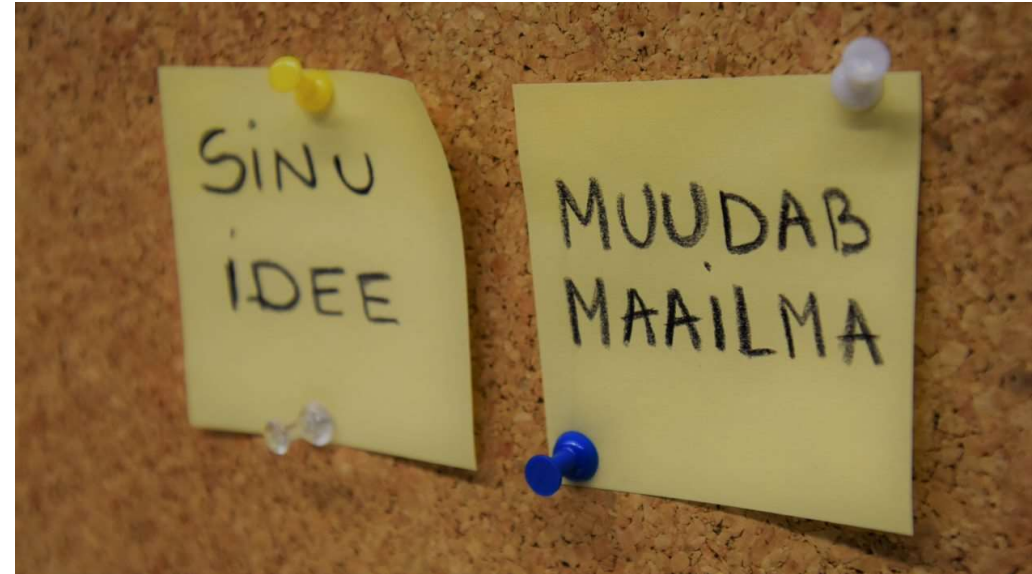 SiNU
iDEE
MUUDAB
MAAiLMA